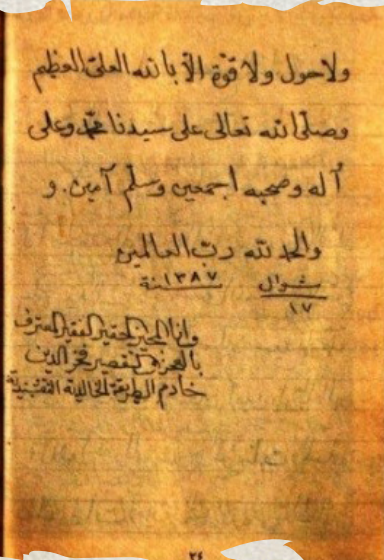 ولاحول ولا قوة الا بالله العلي العظيم
وصلى الله تعالى على سيدنا محمد وعلى
آله وصحبه اجمعين وسلم آمين . و
والحمد لله رب العالمين
شوال ١٣٨٧ سنة
١٧
وانا المجيز الحقير الفقير المعترف
بالعجز والتقصير فخر الدين
خادم الطريقة الخالدية النقشبندية
٢٤